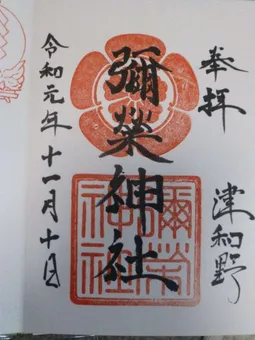 奉拝
津和野
彌榮神社
彌榮神社
令和元年十一月十日